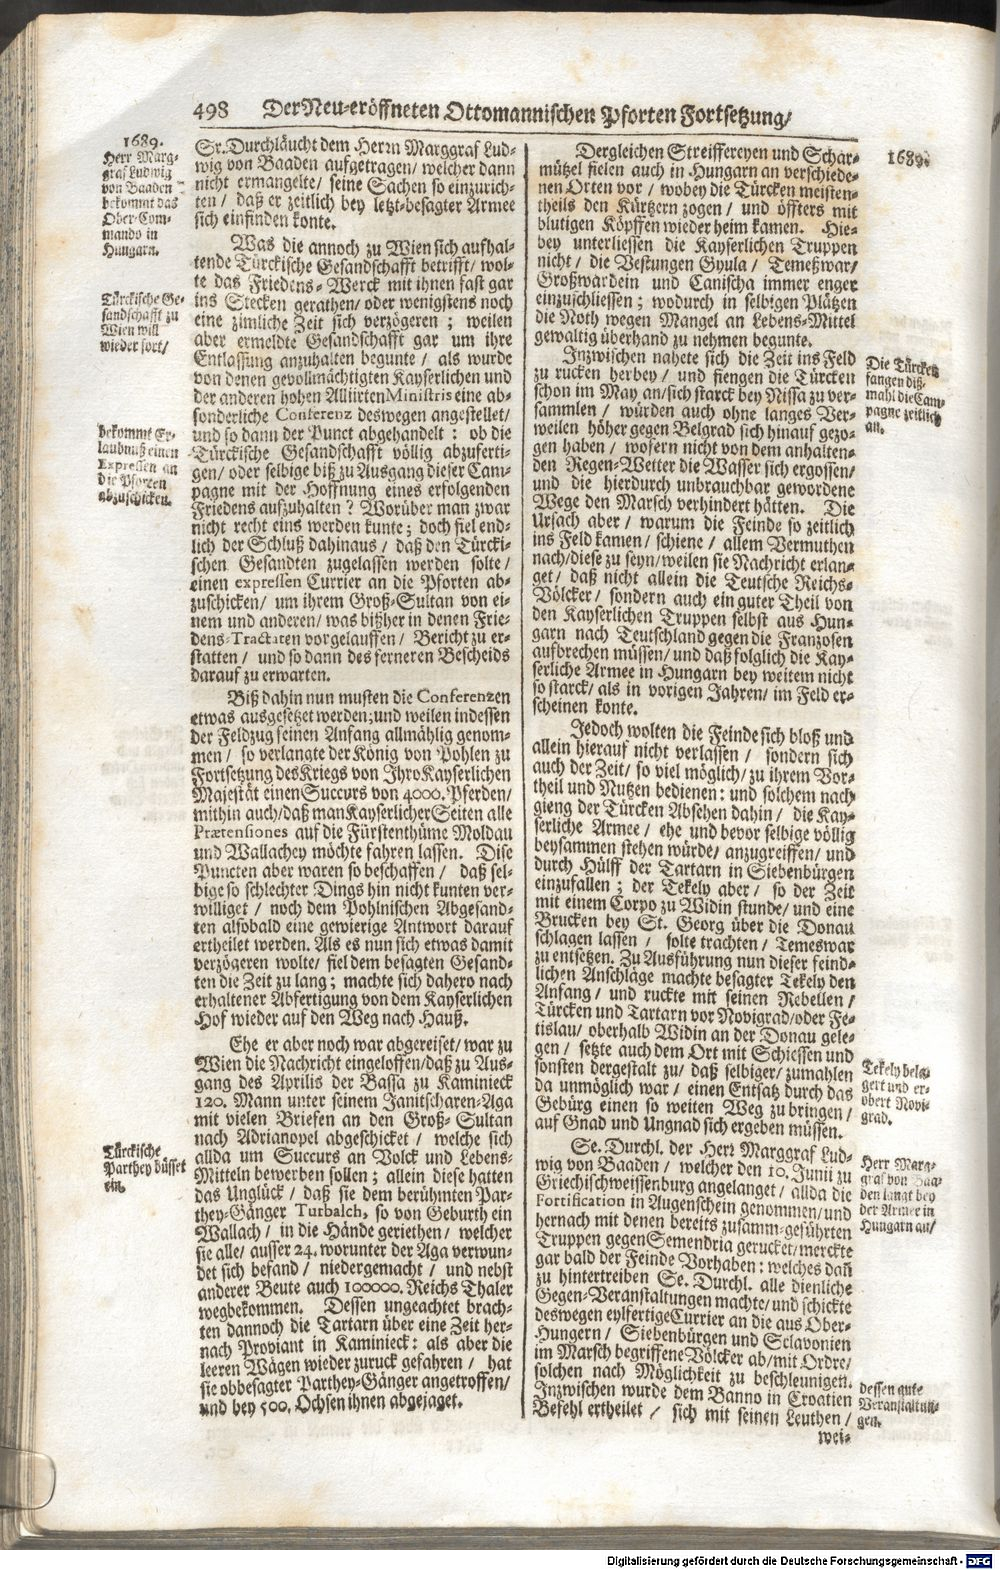 498 Der Neu-eröffneten Ottomannischen Pforten Fortsetzung/
1689.
Herr Marg-
graf Ludwig
von Baaden
bekommt das
Ober-Com-
mando in
Hungarn.
Türckische Ge-
sandschafft zu
Wien will
wieder fort/
bekommt Er-
laubnuß einen
Expressen an
die Pforten
abzuschicken.
Türckische
Parthey büsset
ein.
Sr. Durchläucht dem Herrn Marggraf Lud-
wig von Baaden aufgetragen/ welcher dann
nicht ermangelte/ seine Sachen so einzurich-
ten/ daß er zeitlich bey letzt-besagter Armee
sich einfinden konte.
Was die annoch zu Wien sich aufhal-
tende Türckische Gesandschafft betrifft/ wol-
te das Friedens-Werck mit ihnen fast gar
ins Stecken gerathen/ oder wenigstens noch
eine zimliche Zeit sich verzögeren; weilen
aber ermeldte Gesandschafft gar um ihre
Entlassung anzuhalten begunte/ als wurde
von denen gevollmächtigten Kayserlichen und
der anderen hohen Alliirten Ministris eine ab-
sonderliche Conferenz deswegen angestellet/
und so dann der Punct abgehandelt: ob die
Türckische Gesandschafft völlig abzuferti-
gen/ oder selbige biß zu Ausgang dieser Cam-
pagne mit der Hoffnung eines erfolgenden
Friedens aufzuhalten? Worüber man zwar
nicht recht eins werden kunte; doch fiel end-
lich der Schluß dahinaus/ daß den Türcki-
schen Gesandten zugelassen werden solte/
einen expressen Currier an die Pforten ab-
zuschicken/ um ihrem Groß-Sultan von ei-
nem und anderen/ was bißher in denen Frie-
dens-Tractaten vorgelauffen/ Bericht zu er-
statten/ und so dann des ferneren Bescheids
darauf zu erwarten.
Biß dahin nun musten die Conferenzen
etwas ausgesetzet werden; und weilen indessen
der Feldzug seinen Anfang allmählig genom-
men/ so verlangte der König von Pohlen zu
Fortsetzung des Kriegs von Ihro Kayserlichen
Majestät einen Succurs von 4000. Pferden/
mithin auch/ daß man Kayserlicher Seiten alle
Prætensiones auf die Fürstenthüme Moldau
und Wallachey möchte fahren lassen. Dise
Puncten aber waren so beschaffen/ daß sel-
bige so schlechter Dings hin nicht kunten ver-
williget/ noch dem Pohlnischen Abgesand-
ten alsobald eine gewierige Antwort darauf
ertheilet werden. Als es nun sich etwas damit
verzögeren wolte/ fiel dem besagten Gesand-
ten die Zeit zu lang; machte sich dahero nach
erhaltener Abfertigung von dem Kayserlichen
Hof wieder auf den Weg nach Hauß.
Ehe er aber noch war abgereiset/ war zu
Wien die Nachricht eingeloffen/ daß zu Aus-
gang des Aprilis der Bassa zu Kaminieck
120. Mann unter seinem Janitscharen-Aga
mit vielen Briefen an den Groß-Sultan
nach Adrianopel abgeschicket/ welche sich
allda um Succurs an Volck und Lebens-
Mitteln bewerben sollen; allein diese hatten
das Unglück/ daß sie dem berühmten Par-
they-Gänger Turbalch, so von Geburth ein
Wallach/ in die Hände geriethen/ welcher
sie alle/ ausser 24. worunter der Aga verwun-
det sich befand/ niedergemacht/ und nebst
anderer Beute auch 100000. Reichs Thaler
wegbekommen. Dessen ungeachtet brach-
ten dannoch die Tartarn über eine Zeit her-
nach Proviant in Kaminieck: als aber die
leeren Wägen wieder zuruck gefahren/ hat
sie obbesagter Parthey-Gänger angetroffen/
und bey 500. Ochsen ihnen abgejaget.
Dergleichen Streiffereyen und Schar-
mützel fielen auch in Hungarn an verschiede-
nen Orten vor/ wobey die Türcken meisten-
theils den Kürtzern zogen/ und öffters mit
blutigen Köpffen wieder heim kamen. Hie-
bey unterliessen die Kayserlichen Truppen
nicht/ die Vestungen Gyula/ Temeßwar/
Großwardein und Canischa immer enger
einzuschliessen; wodurch in selbigen Plätzen
die Noth wegen Mangel an Lebens-Mittel
gewaltig überhand zu nehmen begunte.
Inzwischen nahete sich die Zeit ins Feld
zu rucken herbey/ und fiengen die Türcken
schon im May an/ sich starck bey Nissa zu ver-
sammlen/ würden auch ohne langes Ver-
weilen höher gegen Belgrad sich hinauf gezo-
gen haben/ wofern nicht von dem anhalten-
den Regen-Wetter die Wasser sich ergossen/
und die hierdurch unbrauchbar gewordene
Wege den Marsch verhindert hätten. Die
Ursach aber/ warum die Feinde so zeitlich
ins Feld kamen/ schiene/ allem Vermuthen
nach/ diese zu seyn/ weilen sie Nachricht erlan-
get/ daß nicht allein die Teutsche Reichs-
Völcker/ sondern auch ein guter Theil von
den Kayserlichen Truppen selbst aus Hun-
garn nach Teutschland gegen die Franzosen
aufbrechen müssen/ und daß folglich die Kay-
serliche Armee in Hungarn bey weitem nicht
so starck/ als in vorigen Jahren/ im Feld er-
scheinen konte.
Jedoch wolten die Feinde sich bloß und
allein hierauf nicht verlassen/ sondern sich
auch der Zeit/ so viel möglich/ zu ihrem Vor-
theil und Nutzen bedienen: und solchem nach
gieng der Türcken Absehen dahin/ die Kay-
serliche Armee/ ehe und bevor selbige völlig
beysammen stehen würde/ anzugreiffen/ und
durch Hülff der Tartarn in Siebenbürgen
einzufallen; der Tekely aber/ so der Zeit
mit einem Corpo zu Widin stunde/ und eine
Brucken bey St. Georg über die Donau
schlagen lassen/ solte trachten/ Temeswar
zu entsetzen. Zu Ausführung nun dieser feind-
lichen Anschläge machte besagter Tekely den
Anfang/ und ruckte mit seinen Rebellen/
Türcken und Tartarn vor Novigrad/ oder Fe-
tislau/ oberhalb Widin an der Donau gele-
gen/ setzte auch dem Ort mit Schiessen und
sonsten dergestalt zu/ daß selbiger/ zumahlen
da unmöglich war/ einen Entsatz durch das
Gebürg einen so weiten Weg zu bringen/
auf Gnad und Ungnad sich ergeben müssen.
Se. Durchl. der Herr Marggraf Lud-
wig von Baaden/ welcher den 10. Junii zu
Griechischweissenburg angelanget/ allda die
Fortification in Augenschein genommen/ und
hernach mit denen bereits zusamm-geführten
Truppen gegen Semendria gerucket/ merckte
gar bald der Feinde Vorhaben: welches dañ
zu hintertreiben Se. Durchl. alle dienliche
Gegen-Veranstaltungen machte/ und schickte
deswegen eylfertige Currier an die aus Ober-
Hungern/ Siebenbürgen und Sclavonien
im Marsch begriffene Völcker ab/ mit Ordre/
solchen nach Möglichkeit zu beschleunigen.
Inzwischen wurde dem Banno in Croatien
Befehl ertheilet/ sich mit seinen Leuthen/
wei-
1689.
Die Türcken
fangen diß-
mahl die Cam-
pagne zeitlich
an.
Tekely bela-
gert und er-
obert Novi-
grad.
Herr Marg-
graf von Baa-
den langt bey
der Armee in
Hungarn an/
dessen gute
Veranstaltun-
gen.
Digitalisierung gefördert durch die Deutsche Forschungsgemeinschaft - DFG